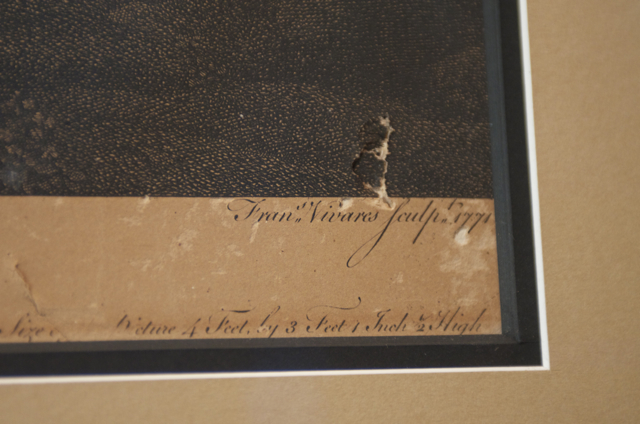 Fran.s Vivares Sculp.t 1771
Size Picture 4 Feet, by 3 Feet 1 Inch ½ High